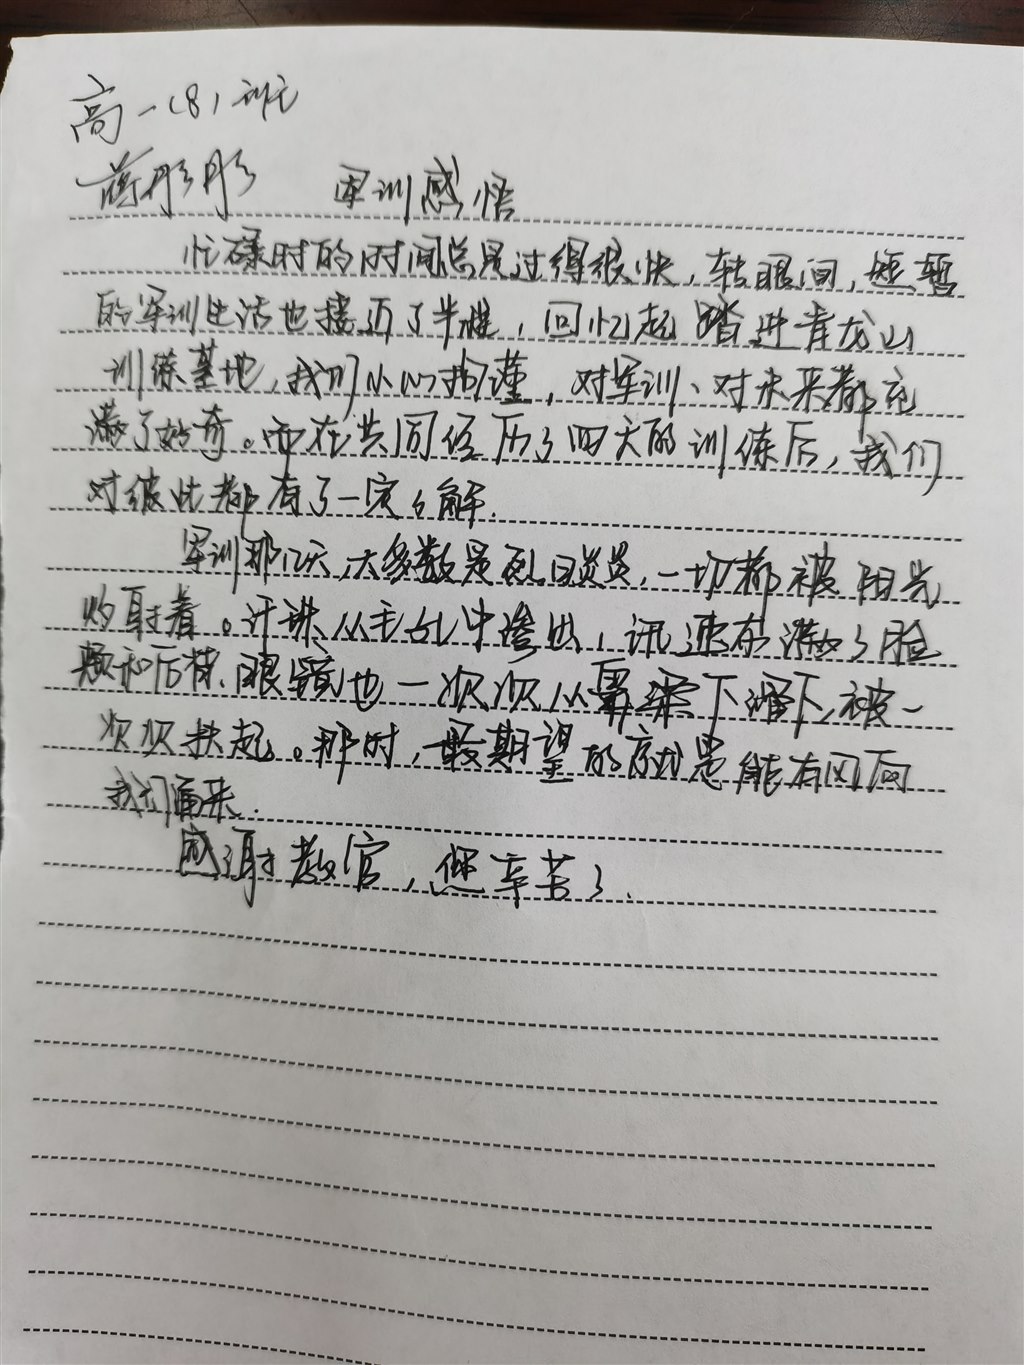 高一（8）班
蒋彤彤 军训感悟
忙碌时的时间总是过得很快，转眼间，短暂
的军训生活也接近了半程，回忆起踏进青龙山
训练基地，我们小心拘谨，对军训、对未来都充
满了好奇。而在共同经历了四天的训练后，我们
对彼此都有了一定了解.
军训那几天，大多数是烈日炎炎，一切都被阳光
灼射着。汗珠从毛孔中渗出，讯速布满了脸
颊和后背、眼镜也一次次从鼻梁下滑下，被一
次次扶起。那时，最期望的就是能有风向
我们面来.
感谢教官，您辛苦了.